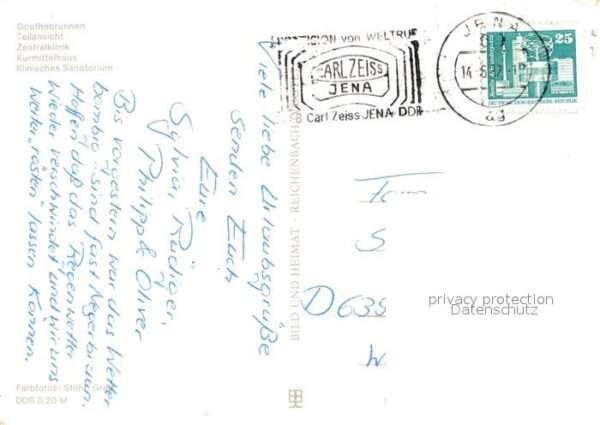 Goethebrunnen
Teilansicht
Zentralklinik
Kurmittelhaus
Klinisches Sanatorium
Viele liebe Urlaubsgrüße
senden Euch
Eure
Sylvia, Rüdiger,
Philipp & Oliver
Bis vorgestern war das Wetter
bombig - sind fast Negerbraun.
Hoffentl. daß das Regenwetter
wieder verschwindet und wir uns
weiter "rösten" lassen können.
Farbfotos: Stöhr
DDR 0,20 M
BILD UND HEIMAT · REICHENBACH
PRÄZISION von WELTRUF
CARL ZEISS
JENA
Carl Zeiss JENA DDR
JENA
ag
25
DEUTSCHE DEMOKRATISCHE REPUBLIK
Fam
S
D 635
W
privacy protection
Datenschutz